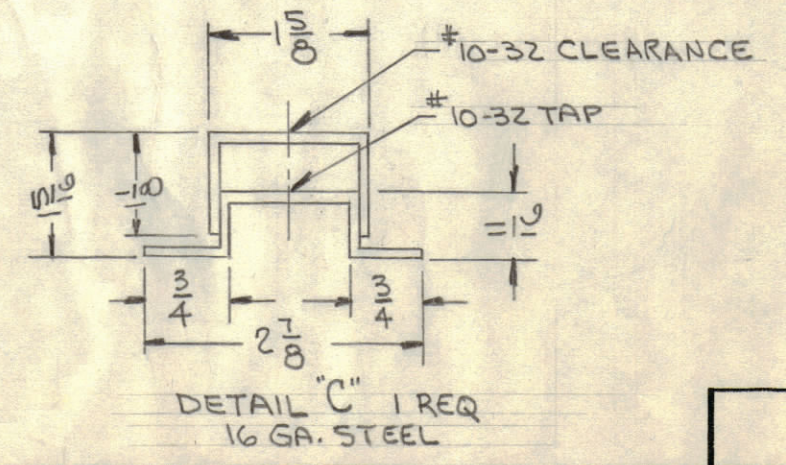 1 5/8
#10-32 CLEARANCE
#10-32 TAP
11/16
3/4
3/4
2 7/8
DETAIL "C" 1 REQ
16 GA. STEEL